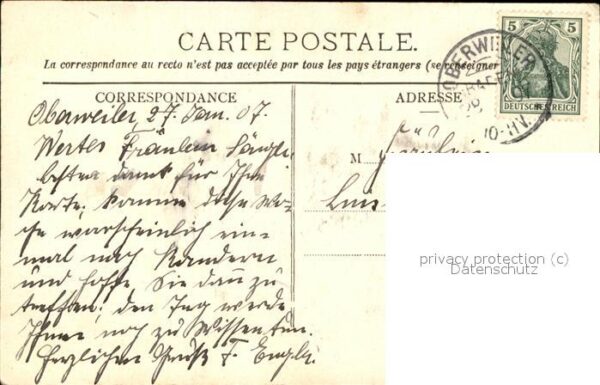 CARTE POSTALE.
La correspondance au recto n'est pas acceptée par tous les pays étrangers (se renseigner
CORRESPONDANCE
ADRESSE
5 5
DEUTSCHES REICH
OBERWEILER
10-11V.
Oberweiler 27. Jan. 07.
Wertes Fräulein
besten dank für Ihre
Karte, komme diese Wo-
che warscheinlich ein-
mal nach Kandern
und hoffe, Sie dan zu
treffen; den Tag werde
Ihnen noch zu Wissen tun.
Herzlichen Gruß F.
M
privacy protection (c)
Datenschutz